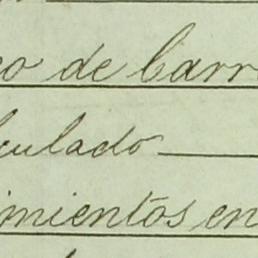 o de Carr
culado
imientos en